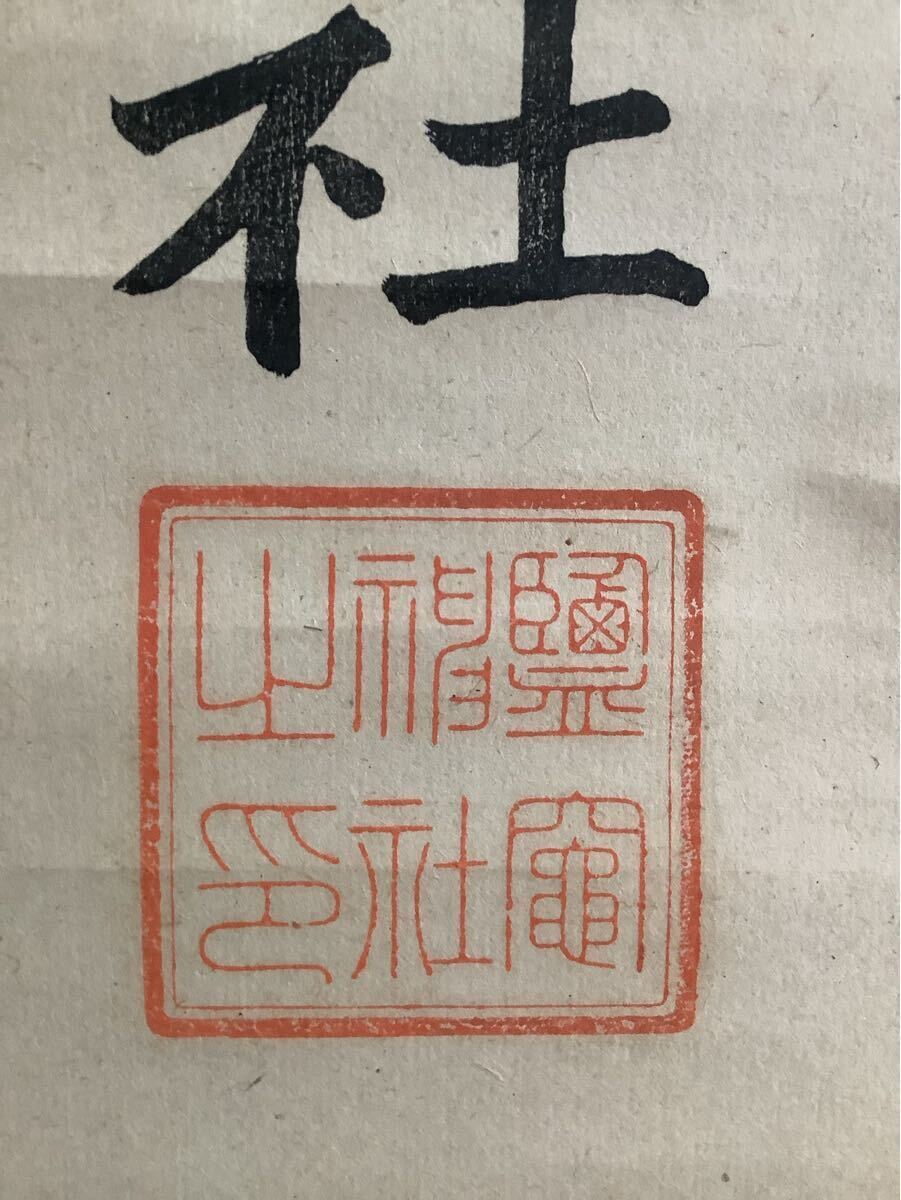 社
鹽竈
神社
之印